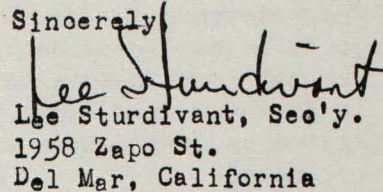 Sincerely
Lee Sturdivant
Lee Sturdivant, Sec'y.
1958 Zapo St.
Del Mar, California